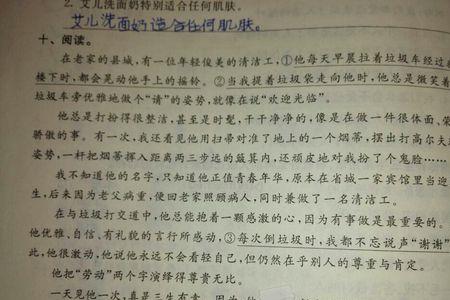 2. 艾儿洗面奶特别适合任何肌肤。
艾儿洗面奶适合任何肌肤。
十、阅读。
在老家的县城,有一位年轻俊美的清洁工,①他每天早晨拉着垃圾车经过
楼下时,都会晃动他手上的摇铃。②当我提着垃圾袋走向他时,他总是微笑着
垃圾车旁优雅地做个“请”的姿势,就像在说“欢迎光临”。
他总是打扮得很整洁,甚至是时髦,干干净净的,像是在做一件很体面、荣
骄傲的事。有一次,我还看见他用扫帚对准了地上的一个烟蒂,摆出打高尔夫
姿势,一杆把烟蒂挥入距离两三步远的簸箕内,还顽皮地对我扮了个鬼脸……
我不知道他的名字,只知道他正值青春年华,原本在省城一家宾馆里当迎
生,后来因为老父病重,便回老家照顾病人,同时兼做了一名清洁工。
在与垃圾打交道中,他总能抱着一颗感激的心,因为有事做是最重要的。
他优雅、自信、有礼貌的言行所感动,③每次倒垃圾时,我都不忘说声“谢谢”
此,他很激动,他说他永远不会看轻自己,但仍然在乎别人的尊重与肯定。
他把“劳动”两个字演绎得尊贵无比。
一天见他一次,真是三生有幸,因为